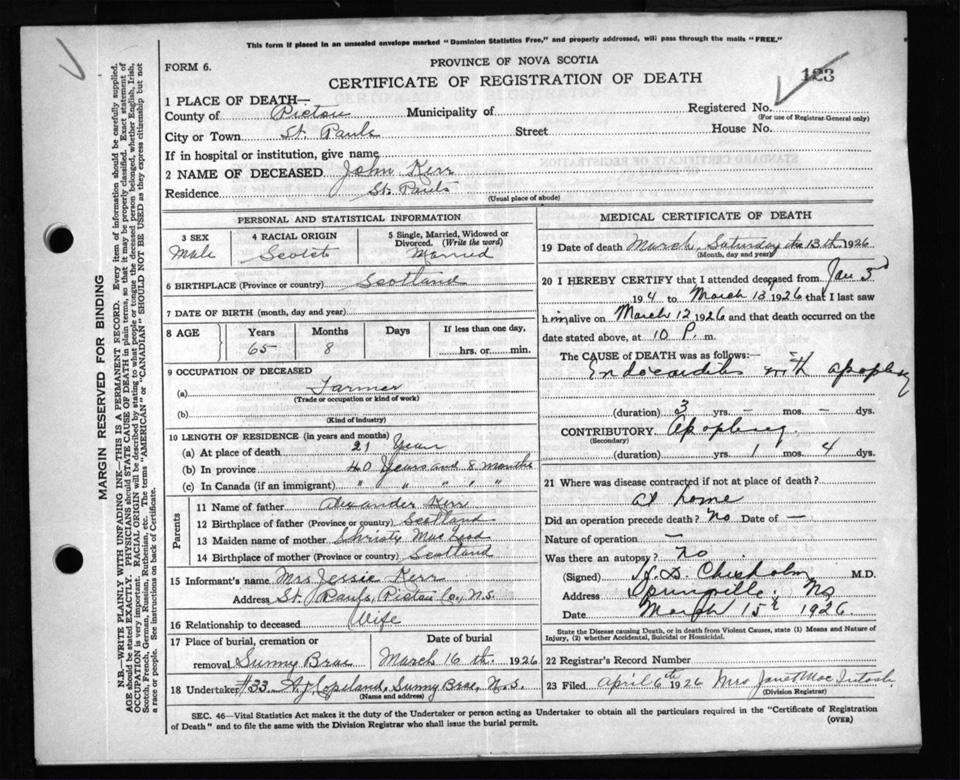 This form if placed in an unsealed envelope marked "Dominion Statistics Free," and properly addressed, will pass through the mails "FREE."
FORM 6.
PROVINCE OF NOVA SCOTIA
CERTIFICATE OF REGISTRATION OF DEATH
123
1 PLACE OF DEATH—
County of Pictou Municipality of Registered No.
(For use of Registrar-General only)
City or Town St. Pauls Street House No.
If in hospital or institution, give name
2 NAME OF DECEASED John Kerr
Residence St. Pauls
(Usual place of abode)
PERSONAL AND STATISTICAL INFORMATION
3 SEX 4 RACIAL ORIGIN 5 Single, Married, Widowed or Divorced. (Write the word)
Male Scotch Married
6 BIRTHPLACE (Province or country) Scotland
7 DATE OF BIRTH (month, day and year)
8 AGE Years Months Days If less than one day,
65 8 hrs. or min.
9 OCCUPATION OF DECEASED
(a) Farmer
(Trade or occupation or kind of work)
(b)
(Kind of industry)
10 LENGTH OF RESIDENCE (in years and months)
(a) At place of death 21 Years
(b) In province 40 Years and 8 months
(c) In Canada (if an immigrant) " " " " "
Parents
11 Name of father Alexander Kerr
12 Birthplace of father (Province or country) Scotland
13 Maiden name of mother Christy MacLeod
14 Birthplace of mother (Province or country) Scotland
15 Informant's name Mrs Jessie Kerr
Address St. Pauls, Pictou Co., N.S.
16 Relationship to deceased Wife
17 Place of burial, cremation or Date of burial
removal Sunny Brae March 16 th. 1926
18 Undertaker #33 A. J. Copeland, Sunny Brae, N.S.
(Name and address)
MEDICAL CERTIFICATE OF DEATH
19 Date of death March, Saturday 13th 1926
(Month, day and year)
20 I HEREBY CERTIFY that I attended deceased from Jan 3rd
194 to March 13 1926 that I last saw
him alive on March 12 1926 and that death occurred on the
date stated above, at 10 P. m.
The CAUSE of DEATH was as follows:—
Endocarditis with apoplexy
(duration) 3 yrs. — mos. — dys.
CONTRIBUTORY Apoplexy
(Secondary)
(duration) yrs. 1 mos. 4 dys.
21 Where was disease contracted if not at place of death?
at home
Did an operation precede death? No Date of —
Nature of operation —
Was there an autopsy? No
(Signed) H. D. Chisholm M.D.
Address Springville, N.S.
Date March 15th 1926
State the Disease causing Death, or in death from Violent Causes, state (1) Means and Nature of
Injury, (2) whether Accidental, Suicidal or Homicidal.
22 Registrar's Record Number
23 Filed April 6th 1926 Mrs Janet MacIntosh
(Division Registrar)
SEC. 46—Vital Statistics Act makes it the duty of the Undertaker or person acting as Undertaker to obtain all the particulars required in the "Certificate of Registration
of Death" and to file the same with the Division Registrar who shall issue the burial permit. (OVER)
MARGIN RESERVED FOR BINDING
N.B.—WRITE PLAINLY WITH UNFADING INK—THIS IS A PERMANENT RECORD. Every item of information should be carefully supplied.
AGE should be stated EXACTLY. PHYSICIANS should STATE CAUSE OF DEATH in plain terms, so that it may be properly classified. Exact statement of
OCCUPATION is very important. RACIAL ORIGIN will be described by stating to what people or tongue the deceased person belonged, whether English, Irish,
Scotch, French, German, Russian, Ruthenian, etc. The terms "AMERICAN" or "CANADIAN" SHOULD NOT BE USED as they express citizenship but not
a race or people. See instructions on back of Certificate.